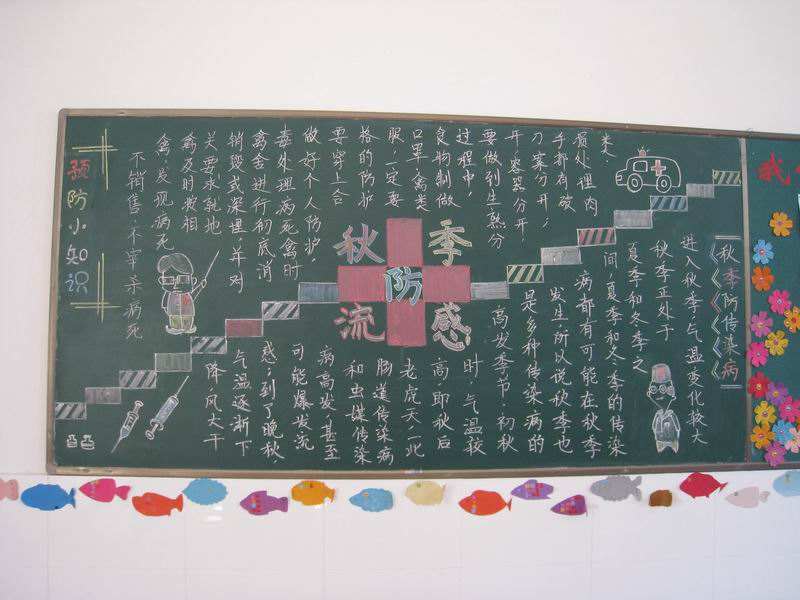 预防小知识
不销售,不宰杀病死
禽,发现病死
禽及时按相
关要求就地
销毁或深埋,并对
禽舍进行彻底消
毒处理病死禽时
做好个人防护,
要穿上合
格的防护
服,一定要
口罩,禽类
食物制做
过程中,
要做到生熟分
开,容器分开,
刀案分开,
手部有破
损处理肉
类.
秋季
防
流感
《秋季防传染病》
进入秋季气温变化较大
秋季正处于
夏季和冬季之
间,夏季和冬季的传染
病都有可能在秋季
发生,所以说秋季也
是多种传染病的
高发季节,初秋
时,气温较
高,即秋后
老虎天,此
肠道传染病
和虫媒传染
病高发,甚至
可能爆发流
感;到了晚秋,
气温逐渐下
降风大干
我